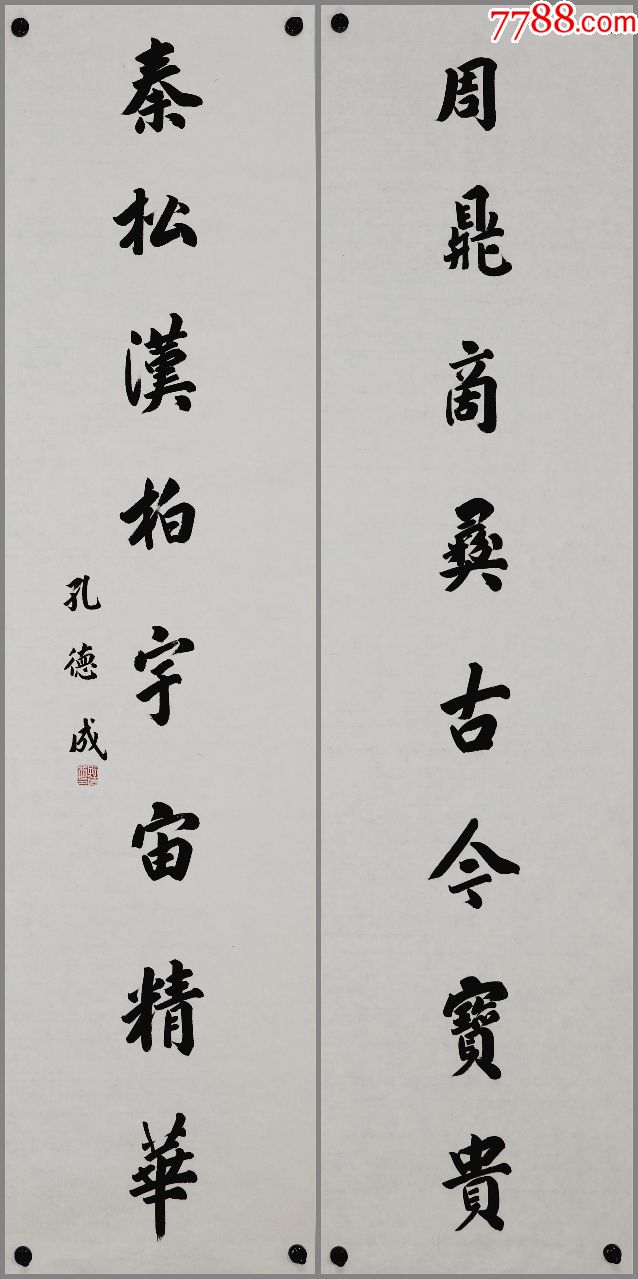 7788.com
周鼎商彝古今寶貴
秦松漢柏宇宙精華
孔德成